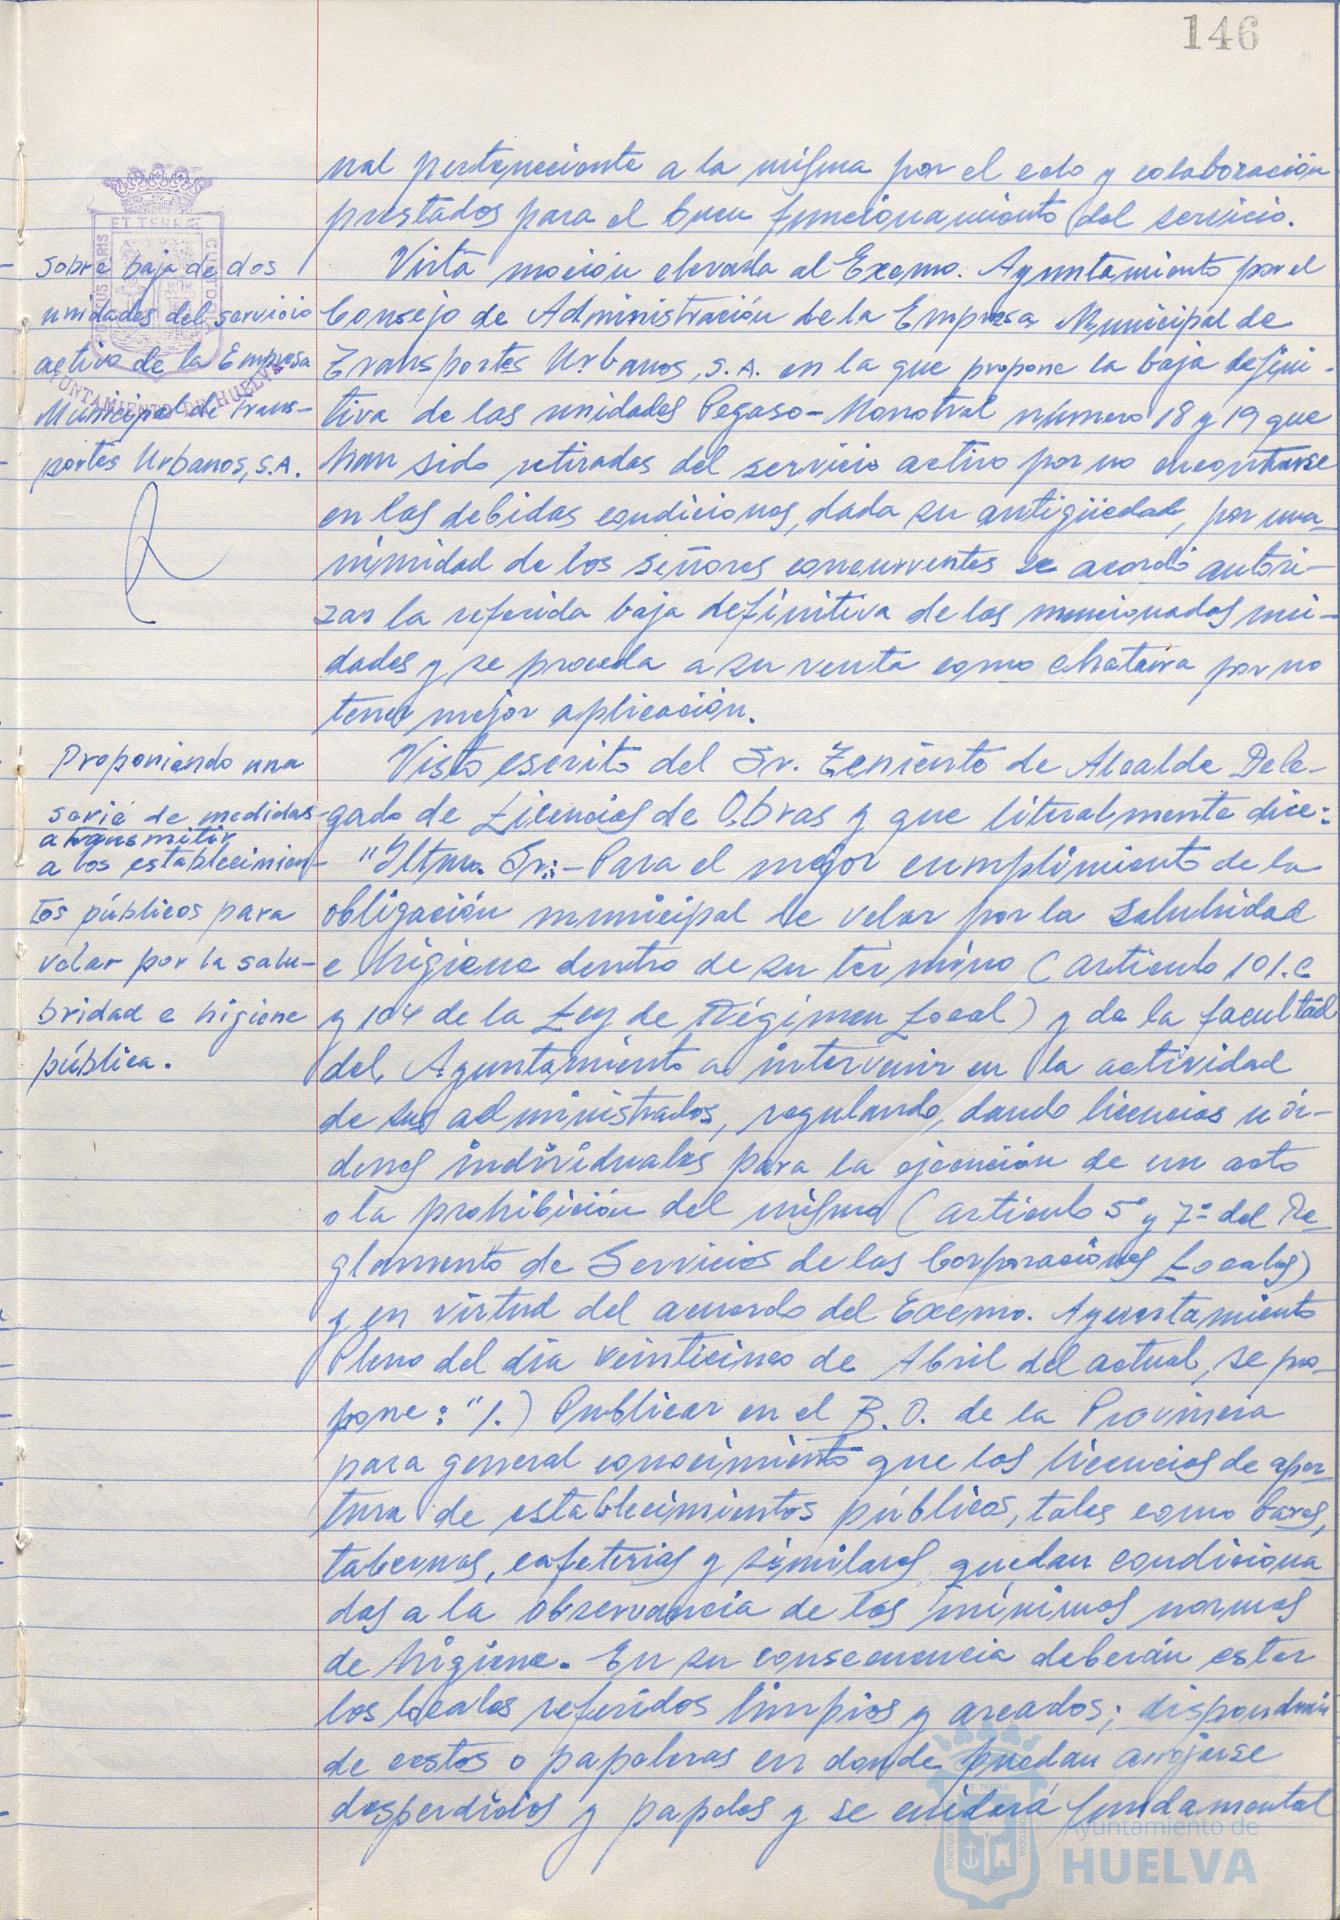 146
nal perteneciente a la misma por el celo y colaboración
prestados para el buen funcionamiento del servicio.
Sobre baja de dos
unidades del servicio
activo de la Empresa
Municipal de Trans-
portes Urbanos, S.A.
Vista moción elevada al Excmo. Ayuntamiento por el
Consejo de Administración de la Empresa Municipal de
Transportes Urbanos, S.A. en la que propone la baja defini-
tiva de las unidades Pegaso-Monotral número 18 y 19 que
han sido retiradas del servicio activo por no encontrarse
en las debidas condiciones, dada su antigüedad, por una-
nimidad de los señores concurrentes se acordó autori-
zar la referida baja definitiva de las mencionadas uni-
dades y se proceda a su venta como chatarra por no
tener mejor aplicación.
Proponiendo una
serie de medidas
a transmitir
a los establecimien-
tos públicos para
velar por la salu-
bridad e higiene
pública.
Visto escrito del Sr. Teniente de Alcalde Dele-
gado de Licencias de Obras y que literalmente dice:
"Iltmo. Sr.:- Para el mejor cumplimiento de la
obligación municipal de velar por la salubridad
e higiene dentro de su término (artículo 101.c
y 104 de la Ley de Régimen Local) y de la facultad
del Ayuntamiento a intervenir en la actividad
de sus administrados, regulando, dando licencias u ór-
denes individuales para la ejecución de un acto
o la prohibición del mismo (artículo 5º y 7º del Re-
glamento de Servicios de las Corporaciones Locales)
y en virtud del acuerdo del Excmo. Ayuntamiento
Pleno del día veinticinco de Abril del actual, se pro-
pone: "1.) Publicar en el B.O. de la Provincia
para general conocimiento que las licencias de aper-
tura de establecimientos públicos, tales como bares,
tabernas, cafeterias y similares, quedan condiciona-
das a la observancia de las mínimas normas
de higiene. En su consecuencia deberán estar
los locales referidos limpios y areados; dispondrán
de cestos o papeleras en donde puedan arrojarse
desperdicios y papeles y se cuidará fundamental
ET TERRÆ
PORTUS MARIS
CUSTODIA
AYUNTAMIENTO DE HUELVA
Ayuntamiento de
HUELVA